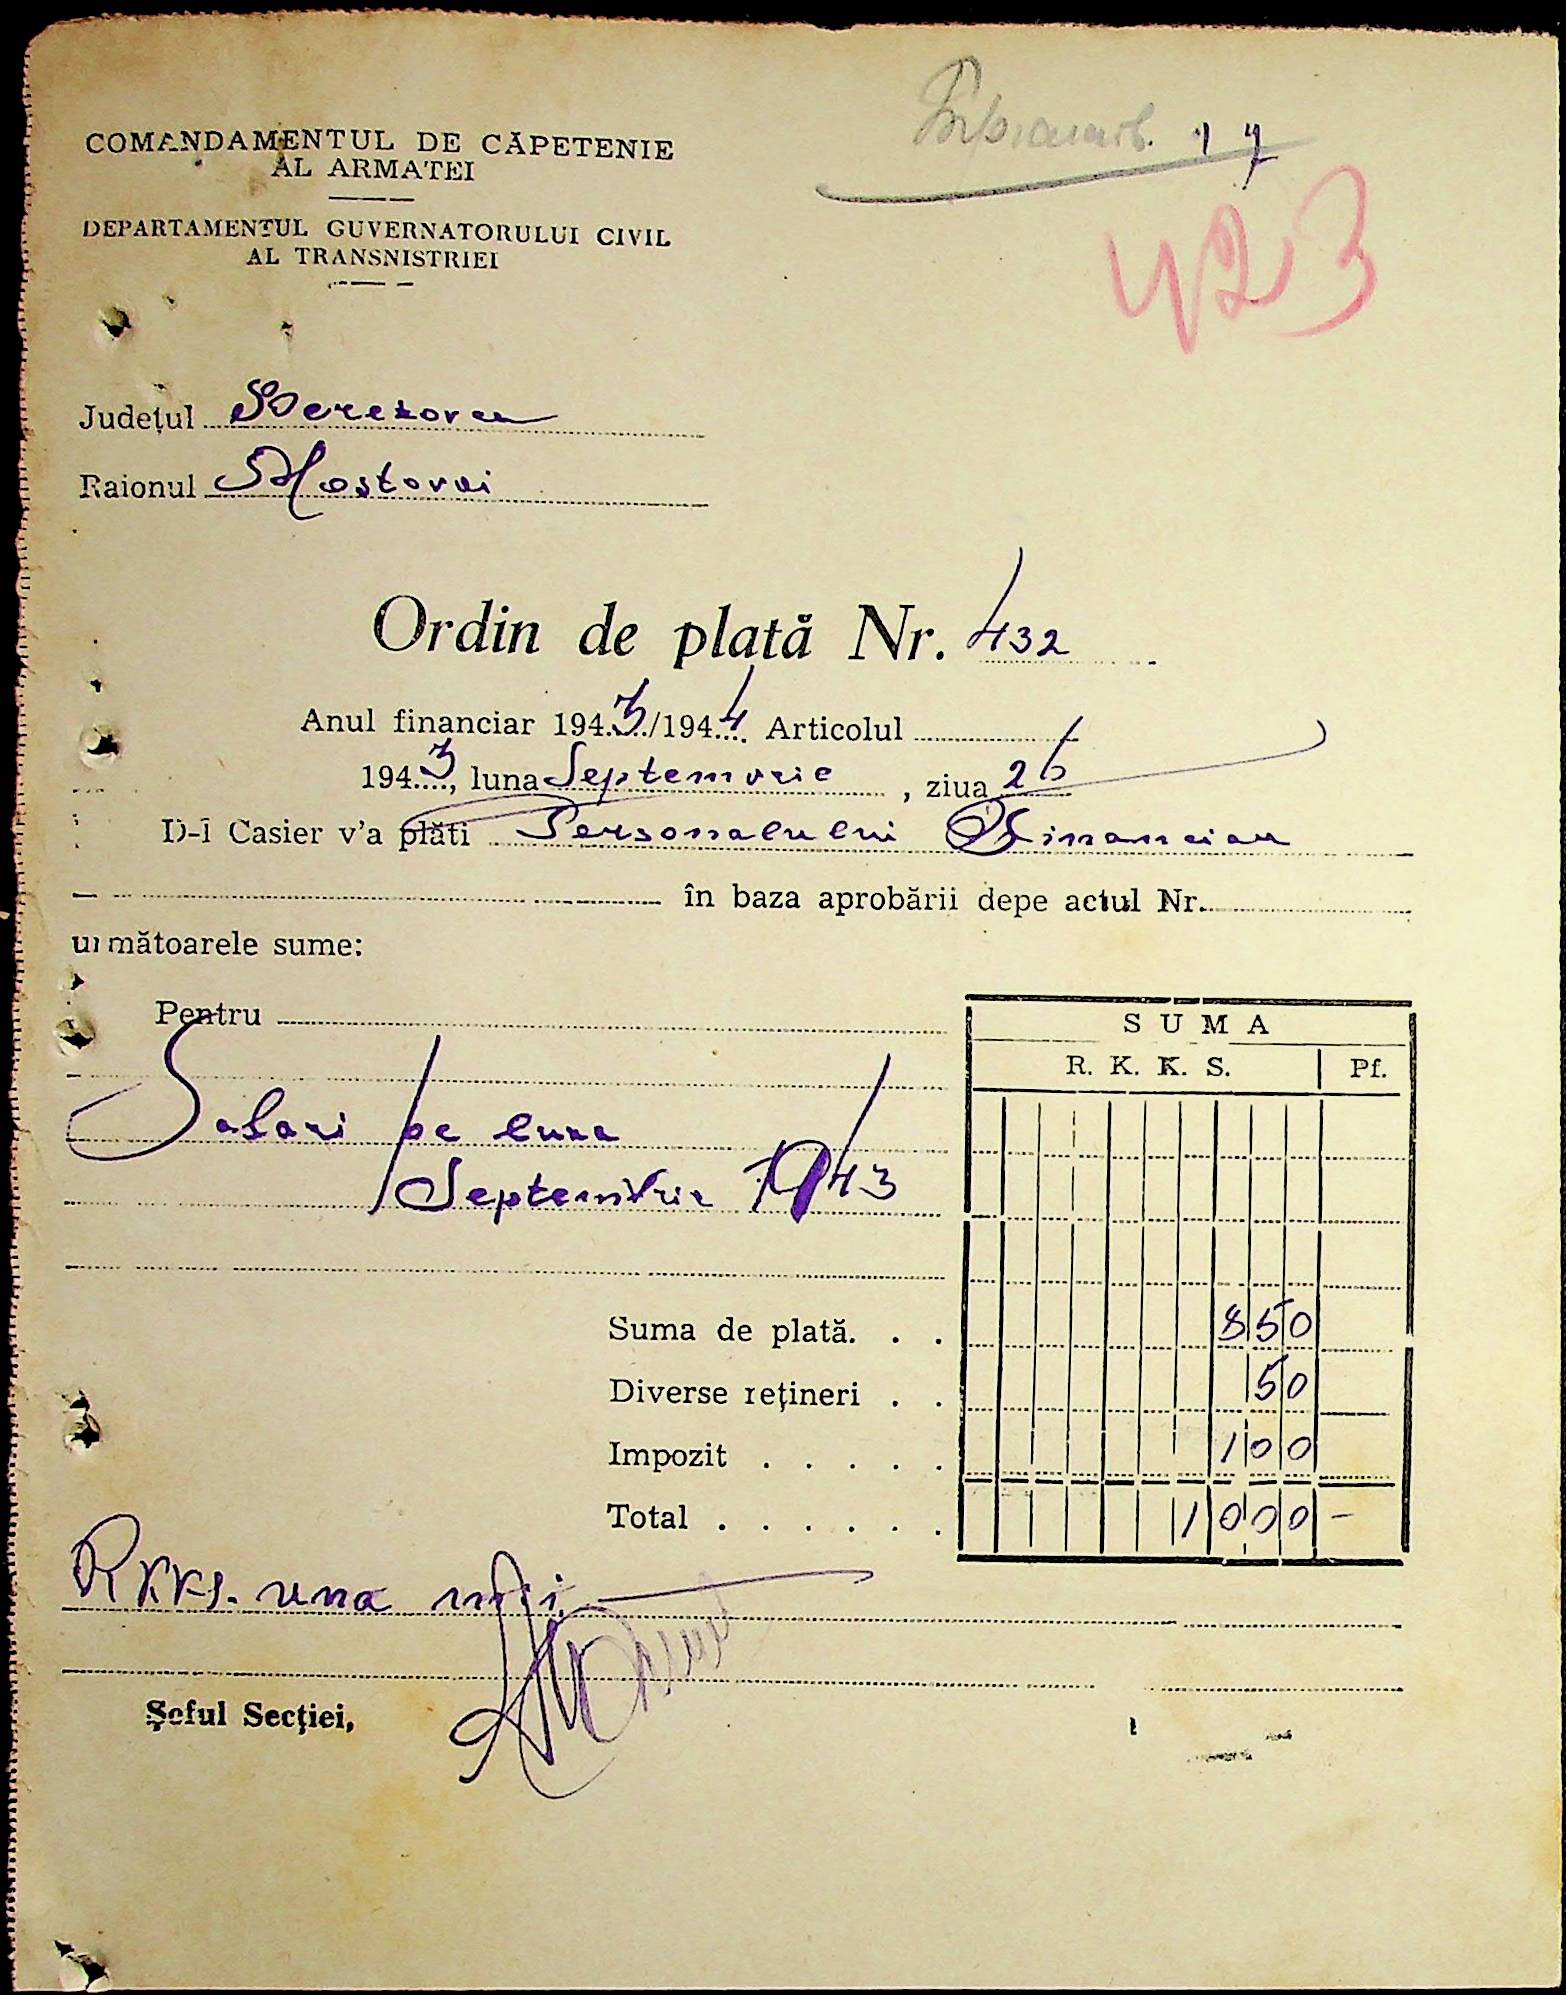 COMANDAMENTUL DE CĂPETENIE
AL ARMATEI
17
DEPARTAMENTUL GUVERNATORULUI CIVIL
AL TRANSNISTRIEI
423
Județul Berezovca
Raionul Mostovoi
Ordin de plată Nr. 432
Anul financiar 1943/1944 Articolul
1943, luna Septemvrie, ziua 26
D-l Casier v'a plăti Personalului Financiar
în baza aprobării depe actul Nr.
următoarele sume:
Pentru
SUMA
R. K. K. S. Pf.
Salari pe luna
Septemvrie 1943
Suma de plată. . . 850
Diverse rețineri . . 50
Impozit . . . . . 100
Total . . . . . . 1000 —
RKKS. una mii
Șeful Secției,